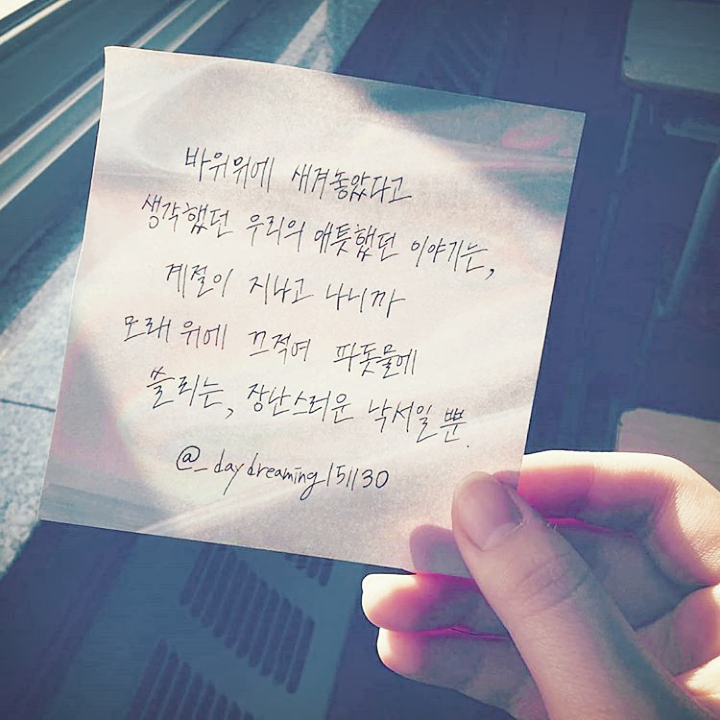 바위위에 새겨놓았다고
생각했던 우리의 애틋했던 이야기는,
계절이 지나고 나니까
모래 위에 끄적여 파돗물에
쓸리는, 장난스러운 낙서일 뿐.
@_daydreaming_151130